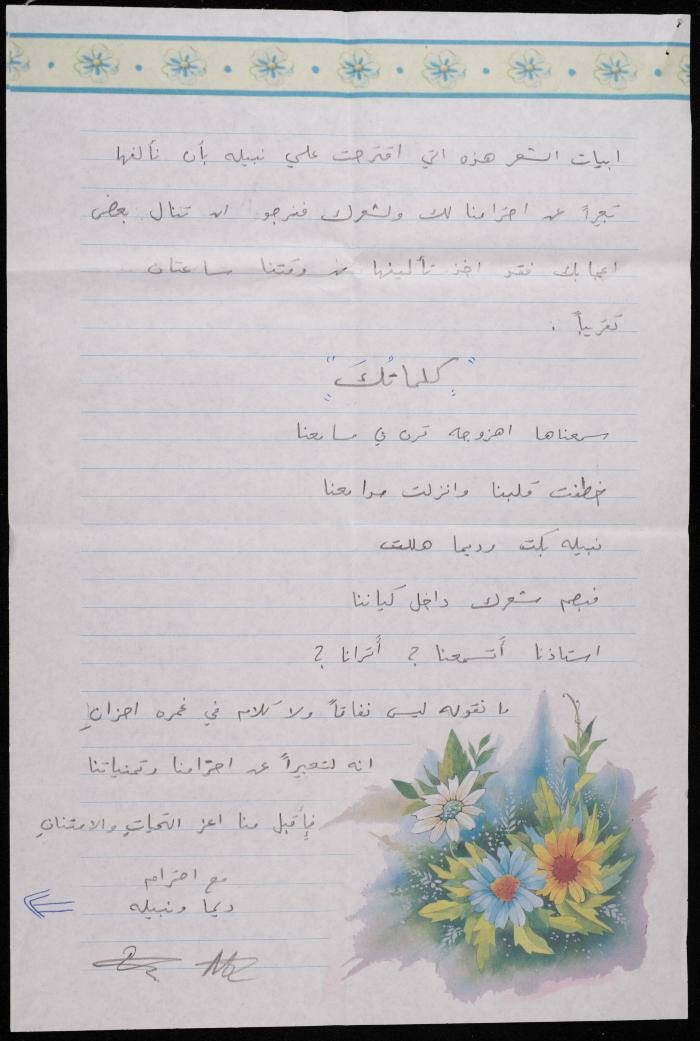 ابيات الشعر هذه التي اقترحت علي نبيله بأن نألفها
تعبيراً عن احترامنا لك ولشعرك فنرجو ان تنال بعض
اعجابك فقد اخذ تأليفها من وقتنا ساعتان
تقريباً .
"كلماتُكَ"
سمعناها اهزوجه ترن في مسامعنا
خطفت قلبنا وانزلت مدامعنا
نبيله بكت وديما هللت
فبصم شعرك داخل كياننا
استاذنا أتسمعنا ? أترانا ?
ما نقوله ليس نفاقاً ولا كلام في غمره احزانِ
انه لتعبيراً عن احترامنا وتمنياتنا
فإقبل منا اعز التحياتِ والامتنانِ
مع احترام
ديما ونبيله